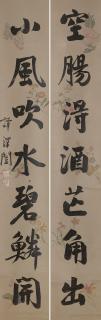 空腸得酒芒角出
小風吹水碧鱗開